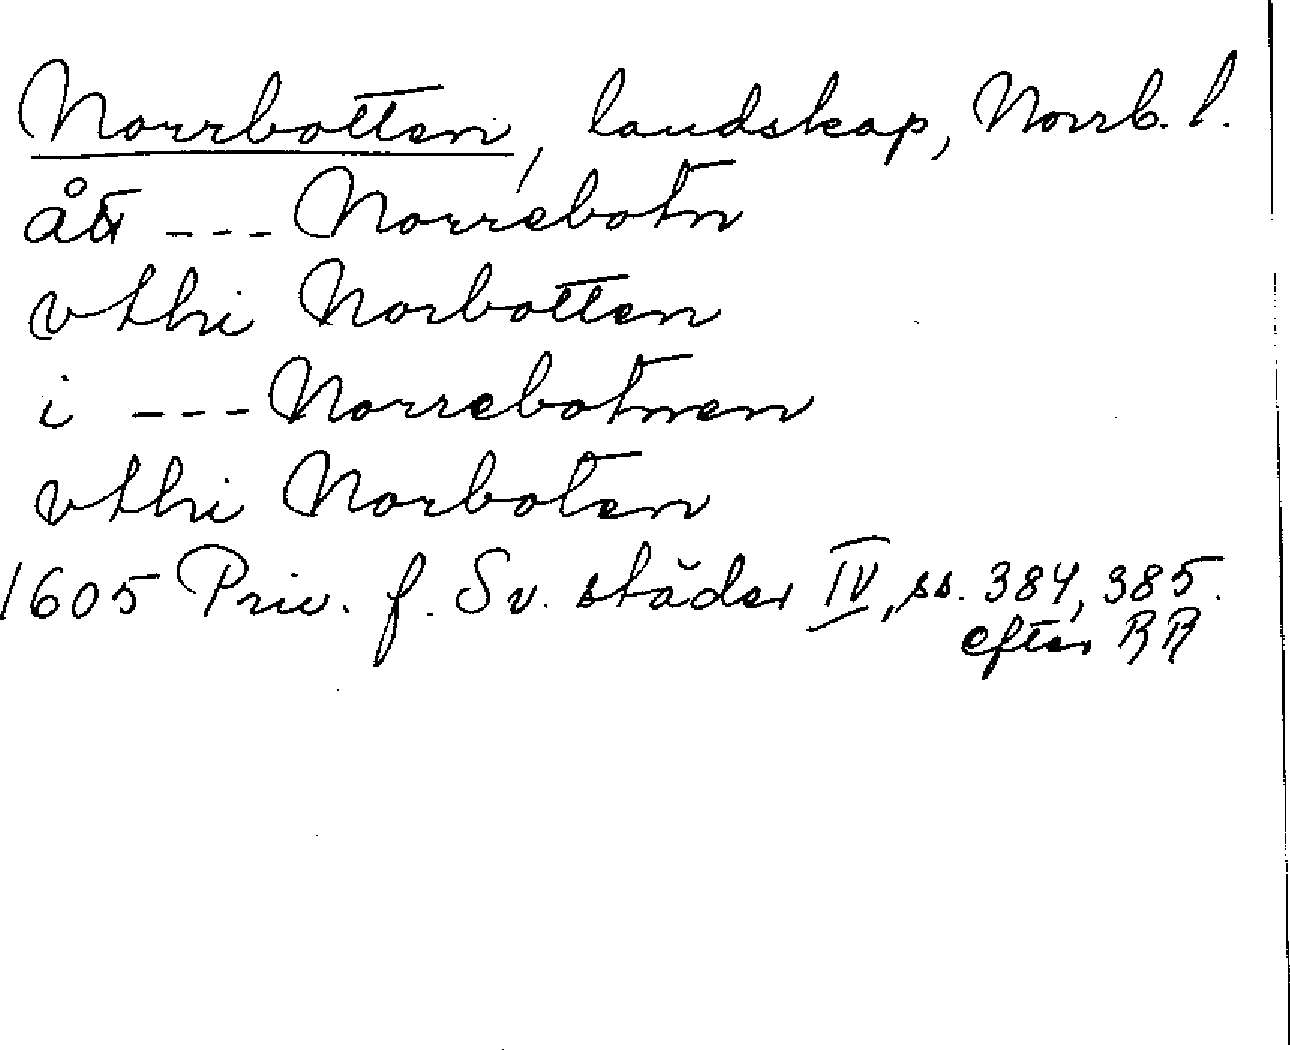 Norrbotten, landskap, Norrb. l.
åt --- Norrebotn
vthi Norbotten
i --- Norrebotnen
vthi Norboten
1605 Priv. f. Sv. städer IV, ss. 384, 385.
efter RR